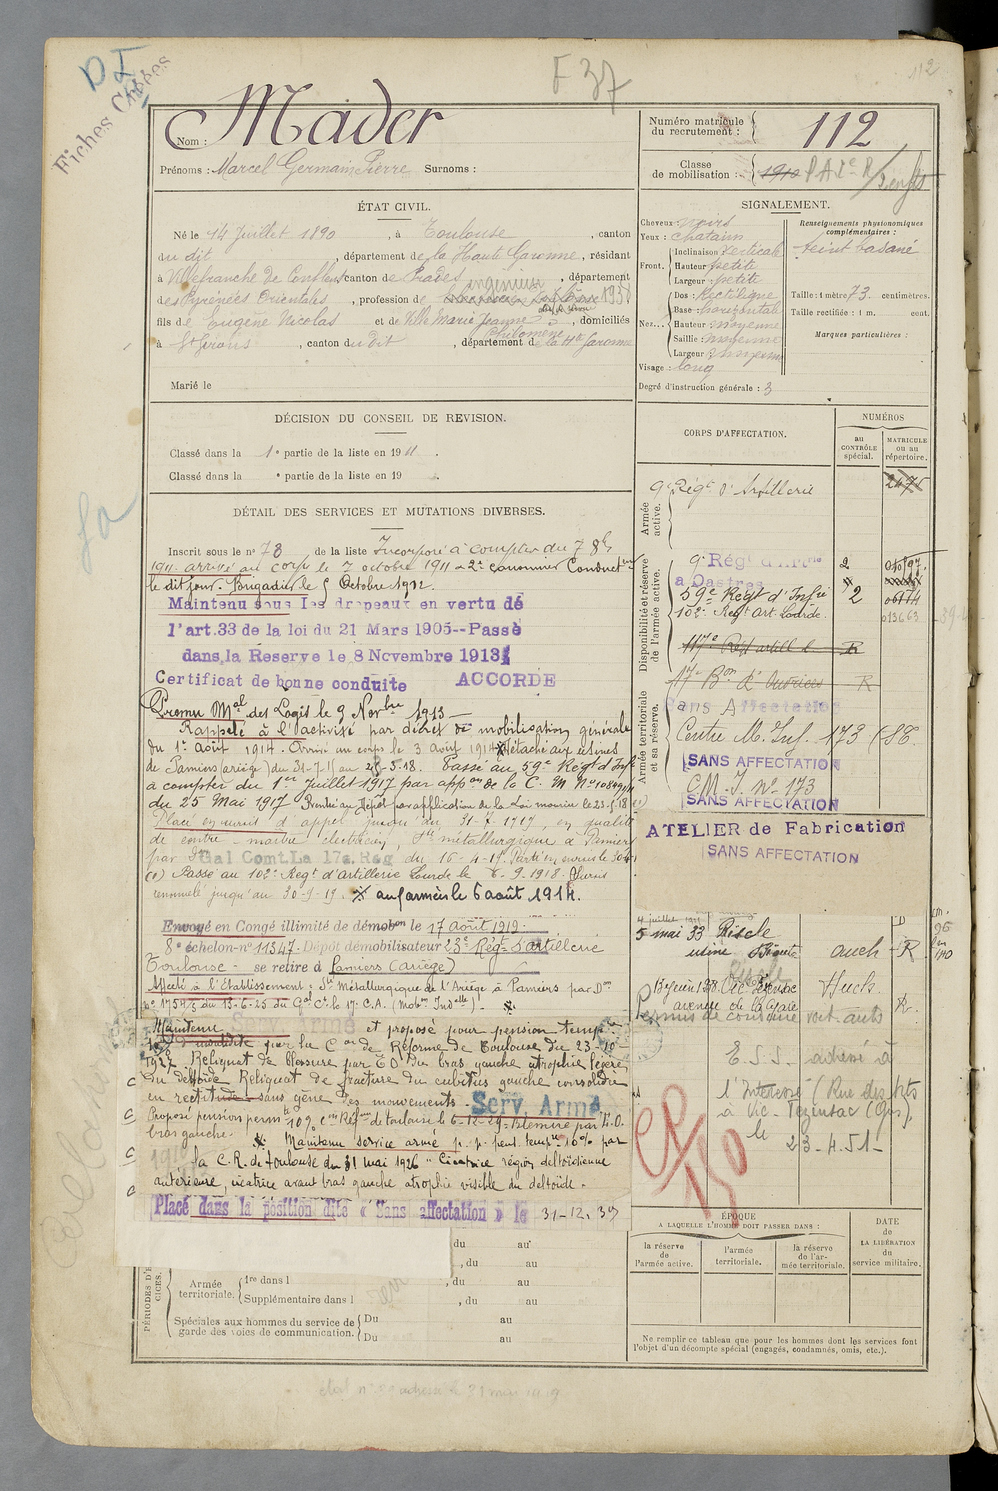 DI
Fiches Créées
F 37
112
Nom : Mader
Prénoms : Marcel Germain Pierre Surnoms :
Numéro matricule du recrutement : 112
Classe de mobilisation : 1910
ÉTAT CIVIL.
Né le 14 Juillet 1890, à Toulouse, canton
du dit, département de la Haute Garonne, résidant
à Villefranche de Conflent, canton de Prades, département
des Pyrénées Orientales, profession de ingénieur
fils de Eugène Nicolas et de Ville Marie Jeanne Philomène, domiciliés
à St Girons, canton du dit, département de la Hte Garonne
Marié le
SIGNALEMENT.
Cheveux : noirs
Yeux : chatains
Front. Inclinaison Verticale
Hauteur petite
Largeur : petite
Nez... Dos : Rectiligne
Base : horizontale
Hauteur : moyenne
Saillie : moyenne
Largeur : moyenne
Visage : long
Renseignements physionomiques complémentaires :
teint basané
Taille : 1 mètre 73 centimètres.
Taille rectifiée : 1 m. cent.
Marques particulières :
Degré d'instruction générale : 3
DÉCISION DU CONSEIL DE REVISION.
Classé dans la 1e partie de la liste en 1911.
Classé dans la e partie de la liste en 19 .
DÉTAIL DES SERVICES ET MUTATIONS DIVERSES.
Inscrit sous le n° 78 de la liste Incorporé à compter du 7 8bre
1911 arrivé au corps le 7 octobre 1911 2e canonnier Conducteur
le dit jour. Brigadier le 5 Octobre 1912.
Maintenu sous les drapeaux en vertu de
l'art.33 de la loi du 21 Mars 1905--Passé
dans la Reserve le 8 Novembre 1913
Certificat de bonne conduite ACCORDE
Promu Mal des Logis le 9 Novbre 1913
Rappelé à l'activité par décret de mobilisation générale
du 1er août 1914. Arrivé au corps le 3 août 1914 Détaché aux usines
de Pamiers (ariège) du 31-7-15 au 23-5-18. Passé au 59e Régt d'Infie
à compter du 1er Juillet 1917 par appon de la C. M. N°
du 25 Mai 1917 Rentré au Dépôt par application de la Loi mourier le 23-5-18 (1)
Placé en sursis d'appel jusqu'au 31-7-1919, en qualité
de contre-maitre électricien, Sté métallurgique à Pamiers
par Gal Comt.La 17e.Reg du 16-4-19.
(1) Passé au 102e Regt d'artillerie Lourde le 6.9.1918. Sursis
renouvelé jusqu'au 30-9-19. aux armées le 6 août 1914.
Envoyé en Congé illimité de démobon le 17 Août 1919.
8e échelon-n° 11347. Dépôt démobilisateur 23e Régt d'artillerie
Toulouse - se retire à Pamiers (Ariège)
Affecté à l'Etablissement : Sté Métallurgique de l'Ariège à Pamiers par Don
n° 1754/5 du 13-6-25 du Gal Ct le 17e C.A. (Mobon Indelle)
Maintenu Serv. Armé et proposé pour pension tempre
10% invalidité par la Con de Réforme de Toulouse du 23-10-
1927. Reliquat de blessure par E.O. du bras gauche atrophie légère
du deltoïde. Reliquat de fracture du cubitus gauche consolidée
en rectitude sans gêne des mouvements.
Serv. Armé
Proposé pension permte 10% con Réfme de toulouse le 6-12-29
bras gauche. Maintenu service armé p. p. pens. tempre 10% par
la C.R. de toulouse du 31 mai 1926 " Cicatrice région deltoïdienne
antérieure, cicatrice avant bras gauche atrophie visible du deltoïde.
Placé dans la position dite « Sans affectation » le 31-12-37
CORPS D'AFFECTATION.
NUMÉROS
au CONTRÔLE spécial.
MATRICULE ou au répertoire.
Armée active.
9e Régt d'Artillerie 2475
Disponibilité et réserve de l'armée active.
9e Régt d'Artie à Castres 2
59e Régt d'Infie 2
102e Regt art. Lourde 013663
117e Régt artill l R
Armée territoriale et sa réserve.
17e Bon d'Ouvriers R
Sans Affectation
Centre M. Inf. 173
SANS AFFECTATION
C.M.I. n° 173
SANS AFFECTATION
ATELIER de Fabrication
SANS AFFECTATION
5 mai 33 Riscle
usine auch R
Vic Fezensac Auch R.
avenue de la Gare
Permis de conduire voit. auto
E.S.S. adressé à
l'Interessé
à Vic-Fezensac (Gers)
le 23-4.51-
CR/50
ÉPOQUE
A LAQUELLE L'HOMME DOIT PASSER DANS :
la réserve de l'armée active.
l'armée territoriale.
la réserve de l'armée territoriale.
DATE de LA LIBÉRATION du service militaire.
Ne remplir ce tableau que pour les hommes dont les services font l'objet d'un décompte spécial (engagés, condamnés, omis, etc.).
du au
, du au
Armée territoriale. 1re dans l , du au
Supplémentaire dans l , du au
Spéciales aux hommes du service de garde des voies de communication. Du au
Du au